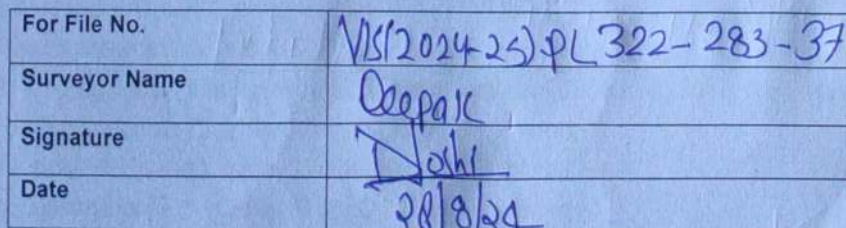 For File No. VIS(2024-25)-PL322-283-37
Surveyor Name Deepak
Signature Joshi
Date 28/8/24